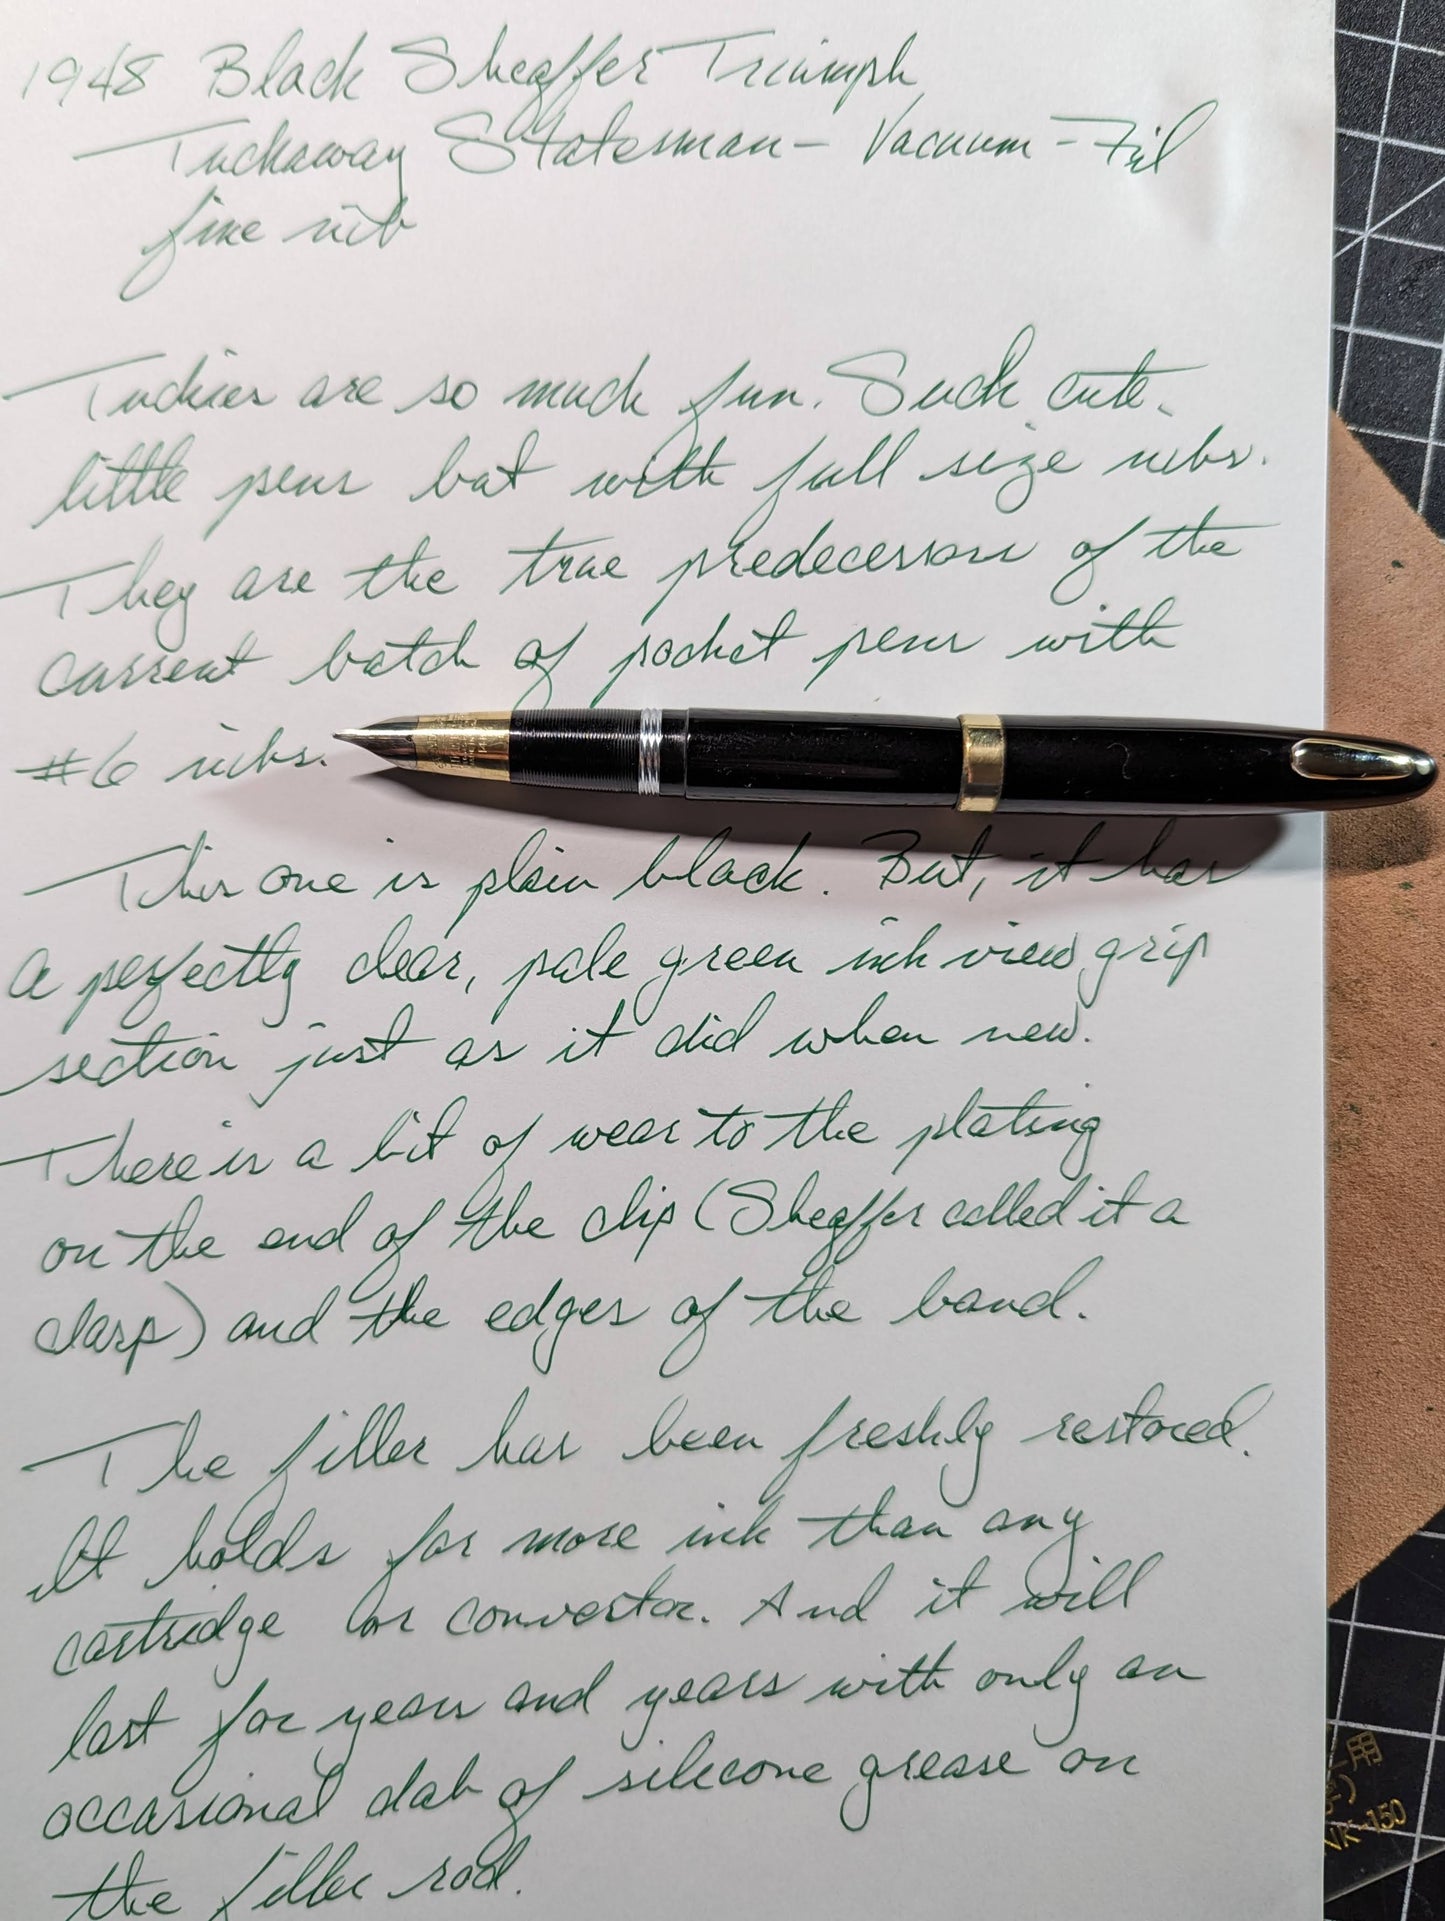 1948 Black Sheaffer Triumph
Tuckaway Statesman - Vacuum-Fil
fine nib
Tuckies are so much fun. Such cute
little pens but with full size nibs.
They are the true predecessors of the
current batch of pocket pens with
#6 nibs.
This one is plain black. But, it has
a perfectly clear, pale green ink view grip
section just as it did when new.
There is a bit of wear to the plating
on the end of the clip (Sheaffer called it a
clasp) and the edges of the band.
The filler has been freshly restored.
It holds far more ink than any
cartridge or convertor. And it will
last for years and years with only an
occasional dab of silicone grease on
the filler rod.
用
NK-150